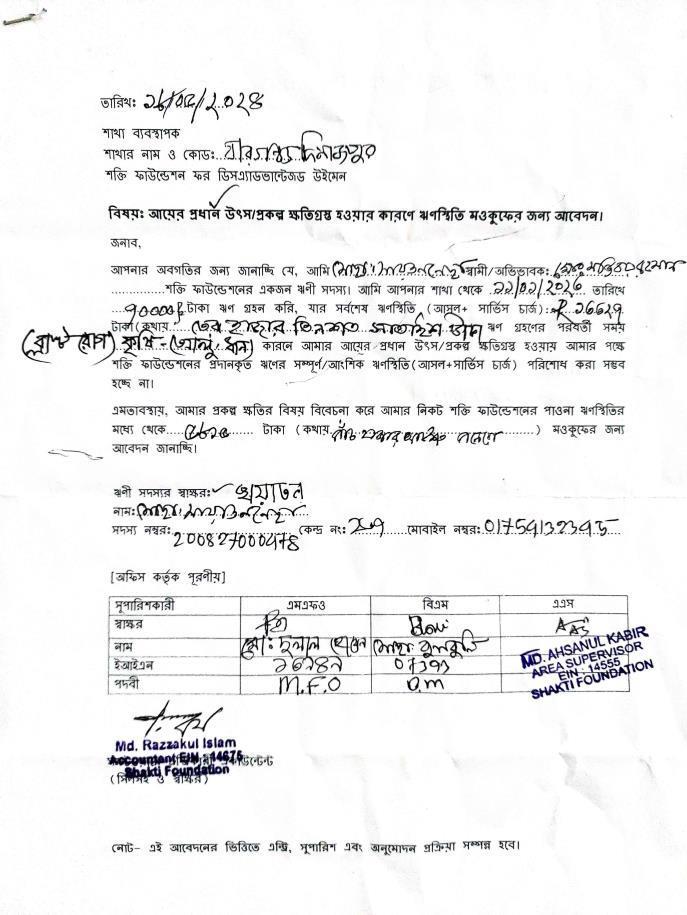 তারিখ: ২০২৪
শাখা ব্যবস্থাপক
শাখার নাম ও কোড: বীরগঞ্জ দিনাজপুর
শক্তি ফাউন্ডেশন ফর ডিসএ্যাডভান্টেজড উইমেন
বিষয়: আয়ের প্রধান উৎস/প্রকল্প ক্ষতিগ্রস্থ হওয়ার কারণে ঋণস্থিতি মওকুফের জন্য আবেদন।
জনাব,
আপনার অবগতির জন্য জানাচ্ছি যে, আমি মোছাঃ স্বামী/অভিভাবক:
শক্তি ফাউন্ডেশনের একজন ঋণী সদস্য। আমি আপনার শাখা থেকে তারিখে
টাকা ঋণ গ্রহন করি, যার সর্বশেষ ঋণস্থিতি (আসল+ সার্ভিস চার্জ):
টাকা (কথায় তের হাজার তিনশত সাতাইশ টাকা ঋণ গ্রহণের পরবর্তী সময়
কৃষি-(আলু, ধান) কারনে আমার আয়ের প্রধান উৎস/প্রকল্প ক্ষতিগ্রস্থ হওয়ায় আমার পক্ষে
শক্তি ফাউন্ডেশনের প্রদানকৃত ঋণের সম্পূর্ণ/আংশিক ঋণস্থিতি(আসল+সার্ভিস চার্জ) পরিশোধ করা সম্ভব
হচ্ছে না।
এমতাবস্থায়, আমার প্রকল্প ক্ষতির বিষয় বিবেচনা করে আমার নিকট শক্তি ফাউন্ডেশনের পাওনা ঋণস্থিতির
মধ্যে থেকে টাকা (কথায় ) মওকুফের জন্য
আবেদন জানাচ্ছি।
ঋণী সদস্যর স্বাক্ষর:
নাম: মোছাঃ
সদস্য নম্বর: 200827000478 কেন্দ্র নং: মোবাইল নম্বর: 01759132395
[অফিস কর্তৃক পূরণীয়]
সুপারিশকারী এমএফও বিএম এএস
স্বাক্ষর
নাম মো: মোছাঃ
ইআইএন
পদবী M.F.O B.M
MD. AHSANUL KABIR
AREA SUPERVISOR
EIN : 14555
SHAKTI FOUNDATION
Md. Razzakul Islam
Accountant EIN : 14675
Shakti Foundation
(সিলসহ ও স্বাক্ষর)
নোট- এই আবেদনের ভিত্তিতে এন্ট্রি, সুপারিশ এবং অনুমোদন প্রক্রিয়া সম্পন্ন হবে।